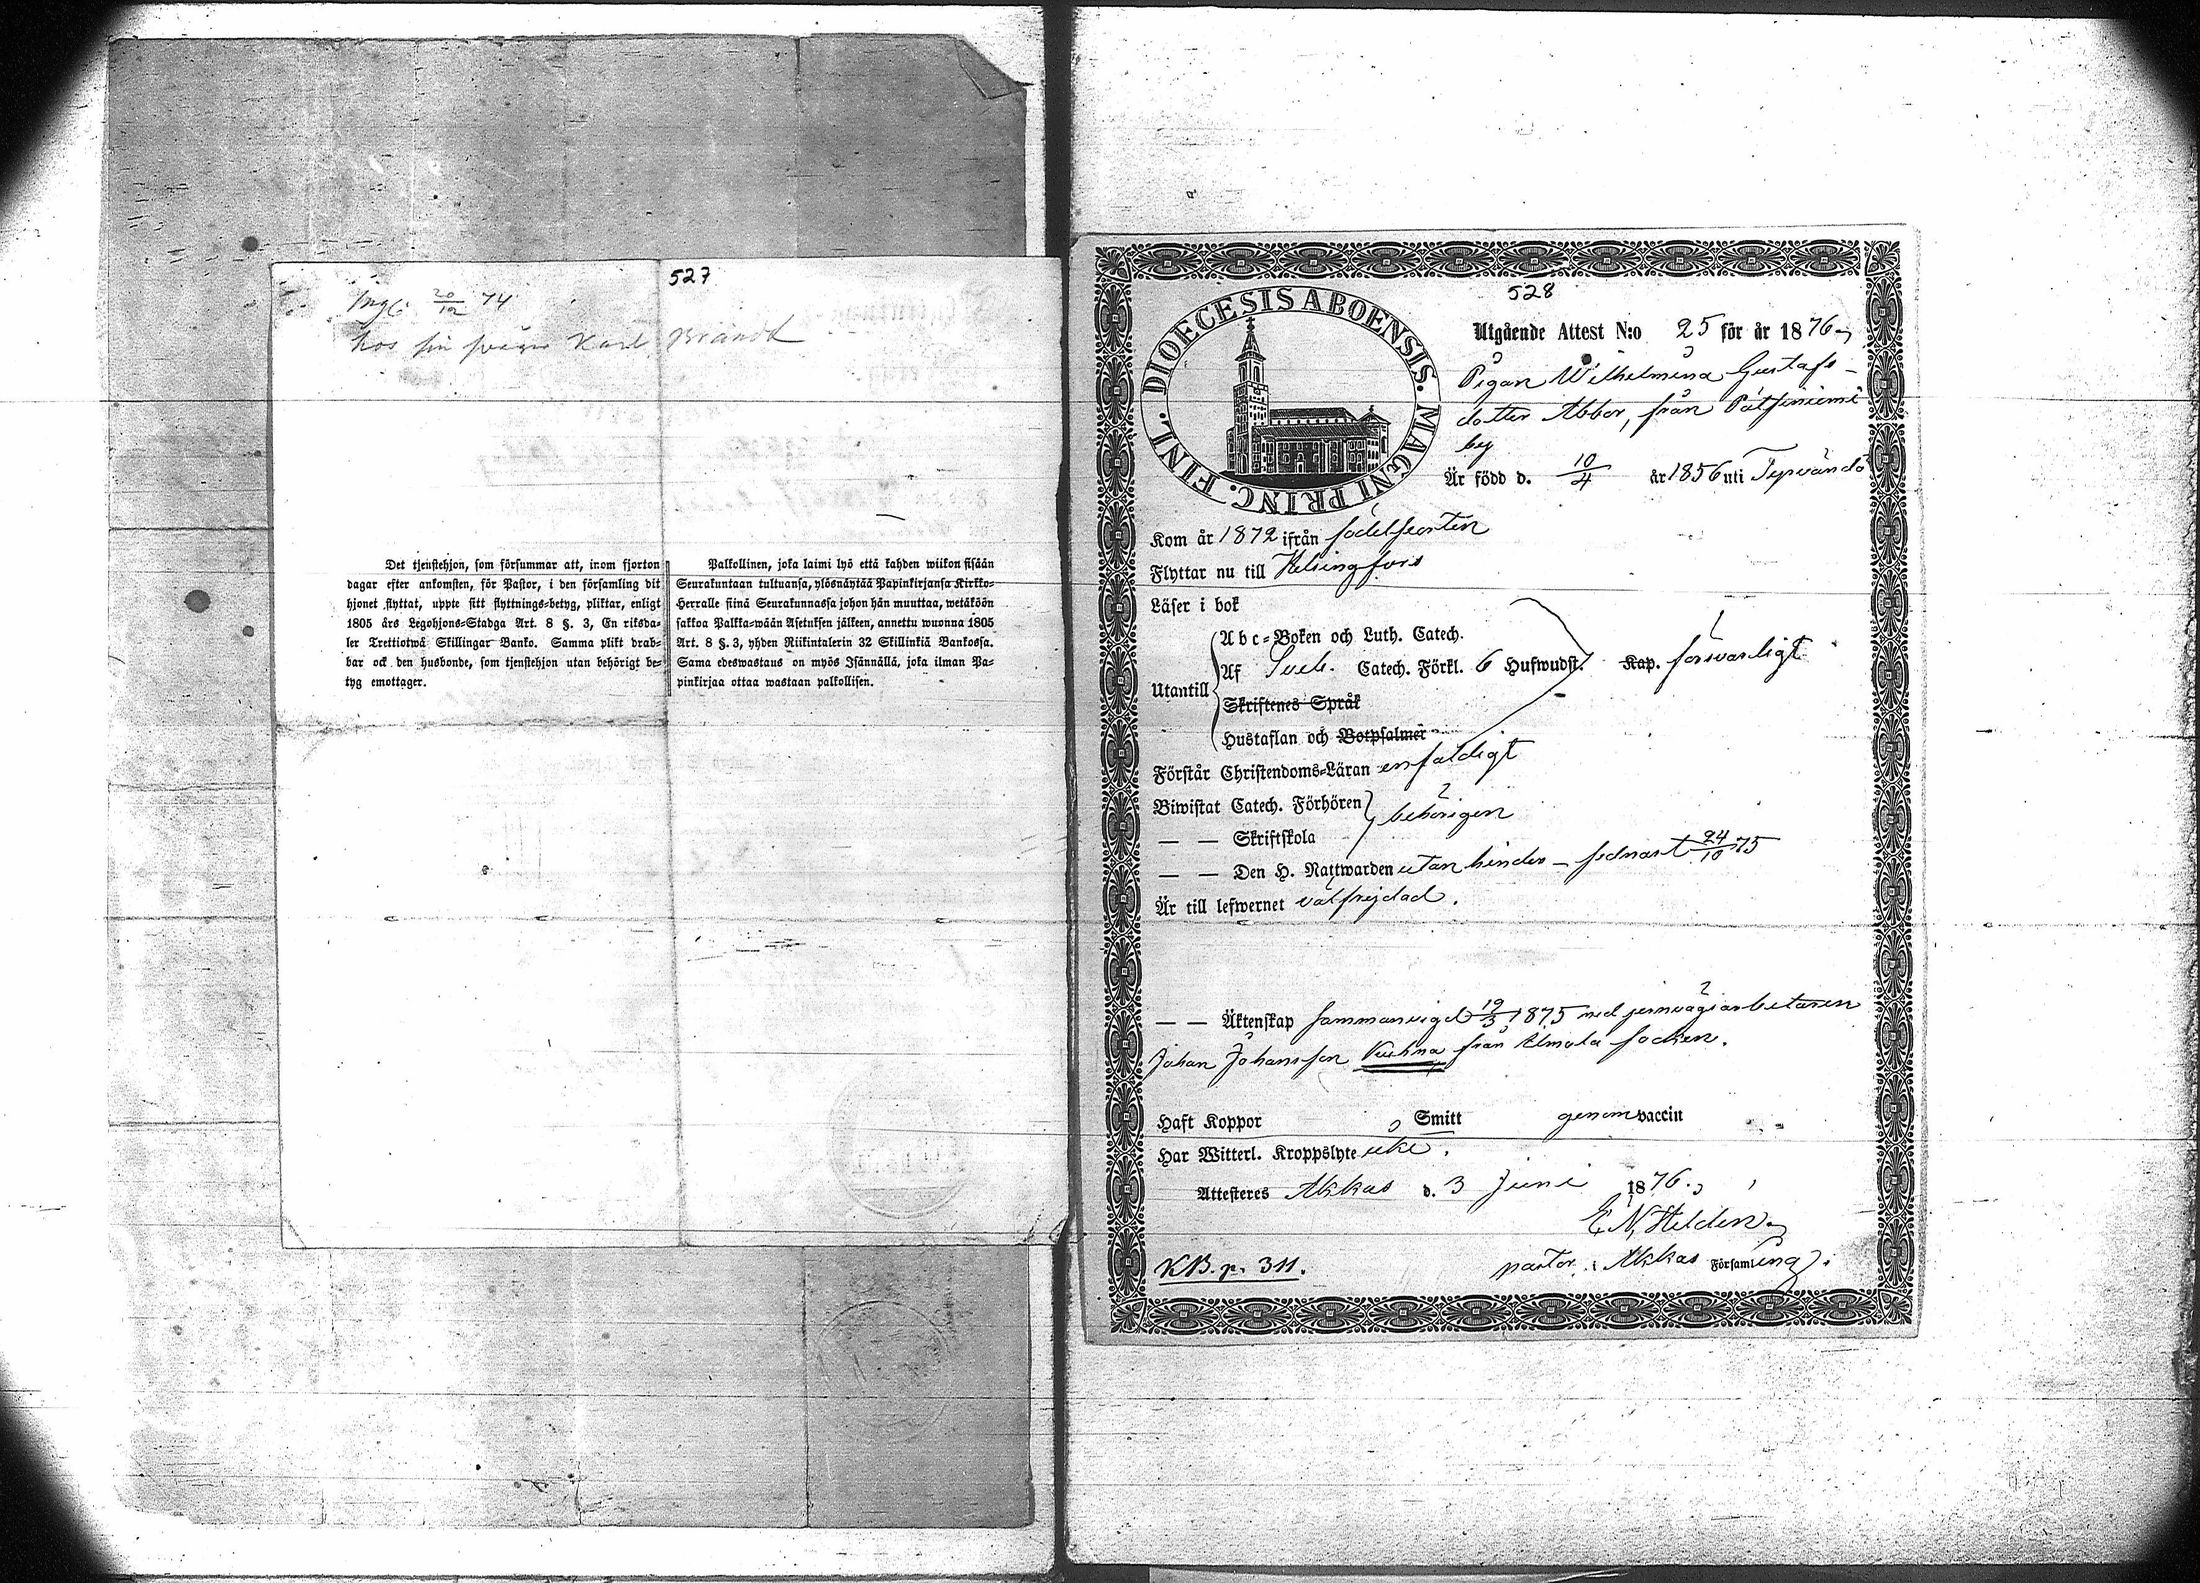 527
Ingl. 20/12 74
hos sin svåger Karl Brandt
Det tjenstehjon, som försummar att, inom fjorton
dagar efter ankomsten, för Pastor, i den församling dit
hjonet flyttat, uppte sitt flyttnings-betyg, pliktar, enligt
1805 års Legohjons-Stadga Art. 8 §. 3, En riksda-
ler Trettiotwå Skillingar Banko. Samma plikt drab-
bar ock den husbonde, som tjenstehjon utan behörigt be-
tyg emottager.
Palkollinen, joka laimi lyö että kahden wiikon sisään
Seurakuntaan tultuansa, ylösnäytää Papinkirjansa Kirkko-
Herralle siinä Seurakunnassa johon hän muuttaa, wetäköön
sakkoa Palkka-wään Asetuksen jälkeen, annettu wuonna 1805
Art. 8 §. 3, yhden Riikintalerin 32 Skillinkiä Bankossa.
Sama edeswastaus on myös Isännällä, joka ilman Pa-
pinkirjaa ottaa wastaan palkollisen.
528
DIOECESIS ABOENSIS. MAGNI PRINC. FINL.
Utgående Attest N:o 25 för år 1876
Pigan Wilhelmina Gustafs-
dotter Abbor, från
by
Är född d. 10/4 år 1856 uti Tyrvändö
Kom år 1872 ifrån födelseorten
Flyttar nu till Helsingfors
Läser i bok
Abc-Boken och Luth. Catech.
Utantill
Af Sveb. Catech. Förkl. 6 Hufwudst. Kap. försvarligt
Skriftenes Språk
Hustaflan och Botpsalmer
Förstår Christendoms-Läran enfaldigt
Biwistat Catech. Förhören
behörigen
— — Skriftskola
— — Den H. Nattwarden utan hinder – sednast 24/10 75
Är till lefwernet välfrejdad.
— — Äktenskap sammanvigd 19/3 1875 med jernvägsarbetaren
Johan Johansson Kuhna från Ilmola socken.
Haft Koppor Smitt genom vaccin
Har Witterl. Kroppslyte icke.
Attesteres Akkas d. 3 Juni 1876.
E. N. Helden
KB. p. 311.
pastor i Akkas Församling.